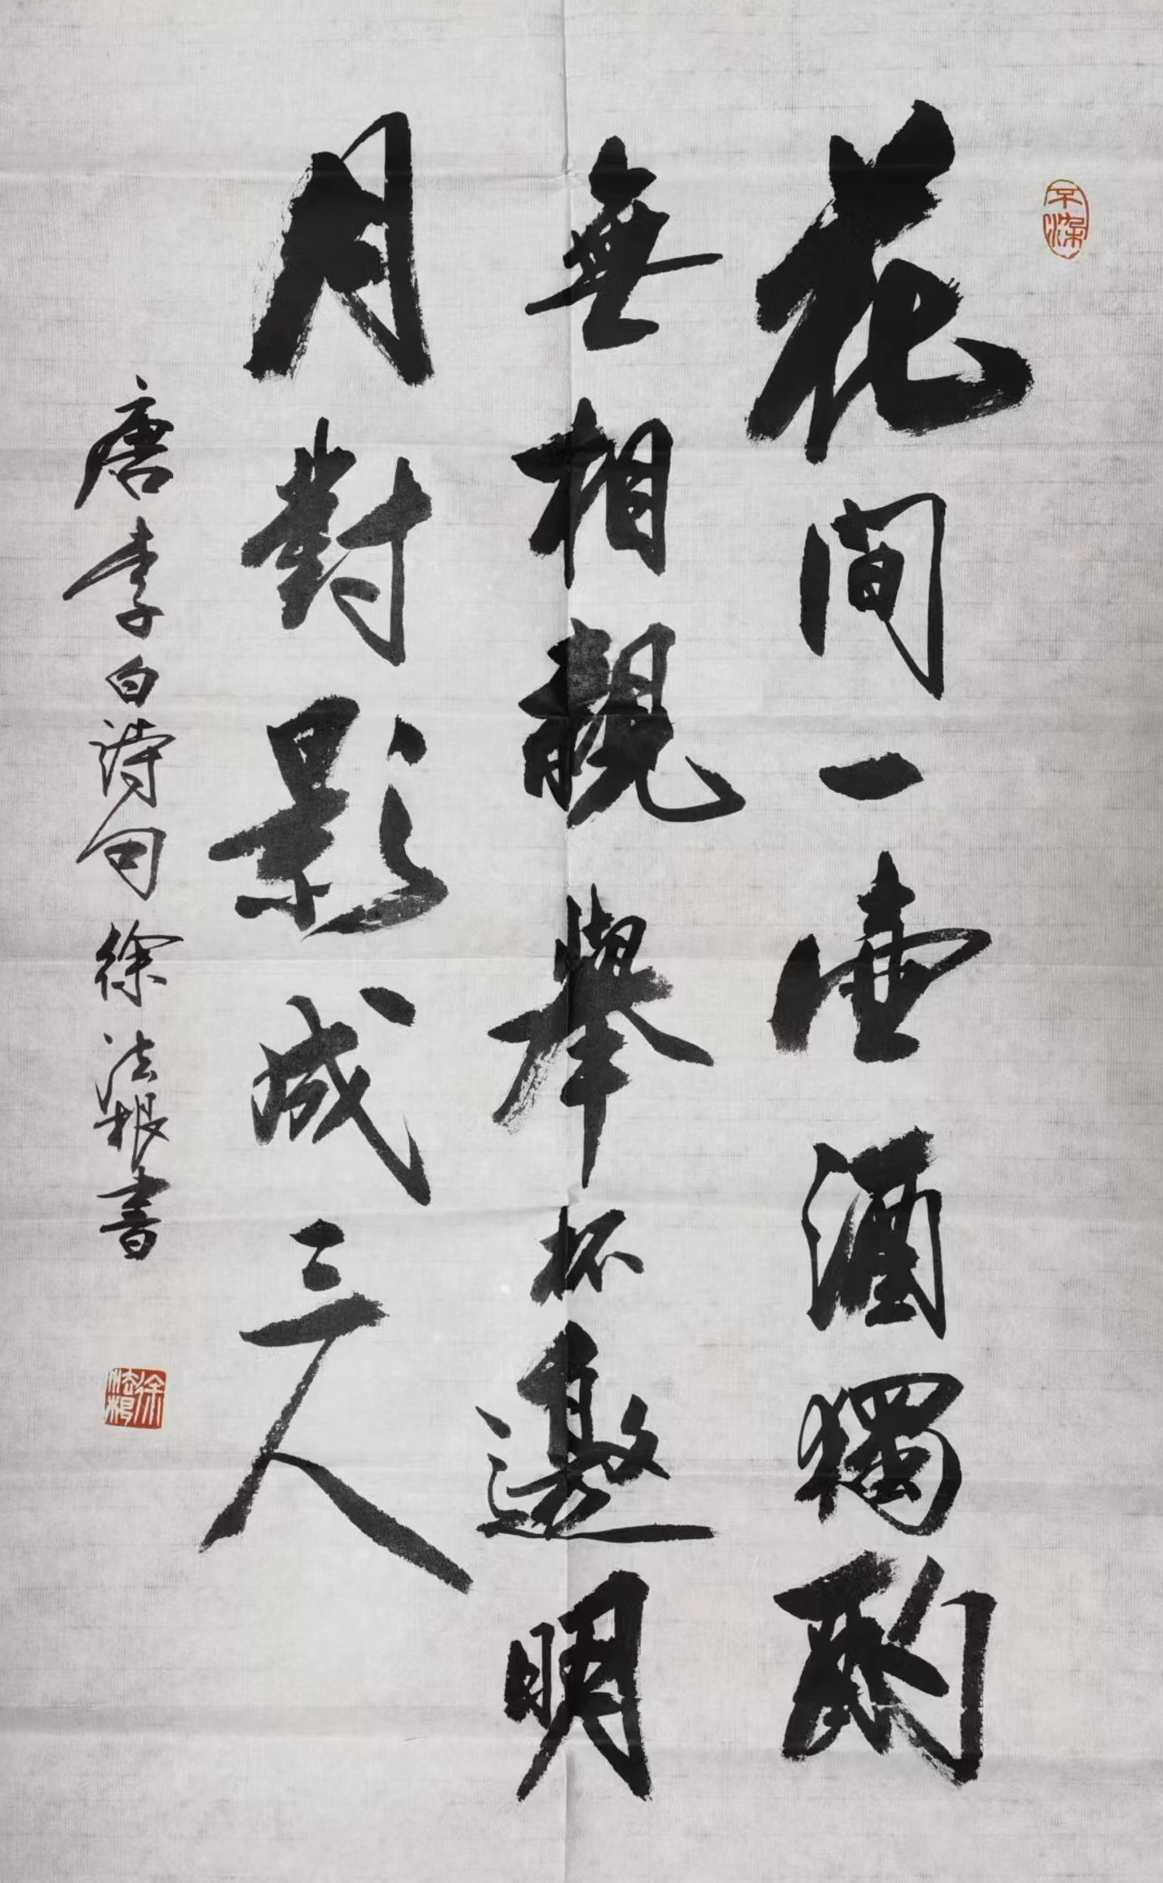 花間一壺酒獨酌
無相親舉杯邀明
月對影成三人
唐李白詩句徐法根書
徐法根